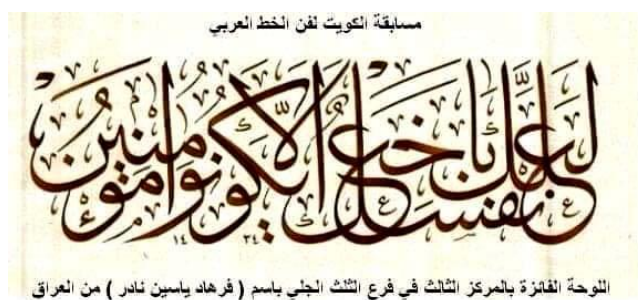 مسابقة الكويت لفن الخط العربي
لَعَلَّكَ بَاخِعٌ نَفْسَكَ أَلَّا يَكُونُوا مُؤْمِنِينَ
١٤ ٣٤
اللوحة الفائزة بالمركز الثالث في فرع الثلث الجلي باسم ( فرهاد ياسين نادر ) من العراق